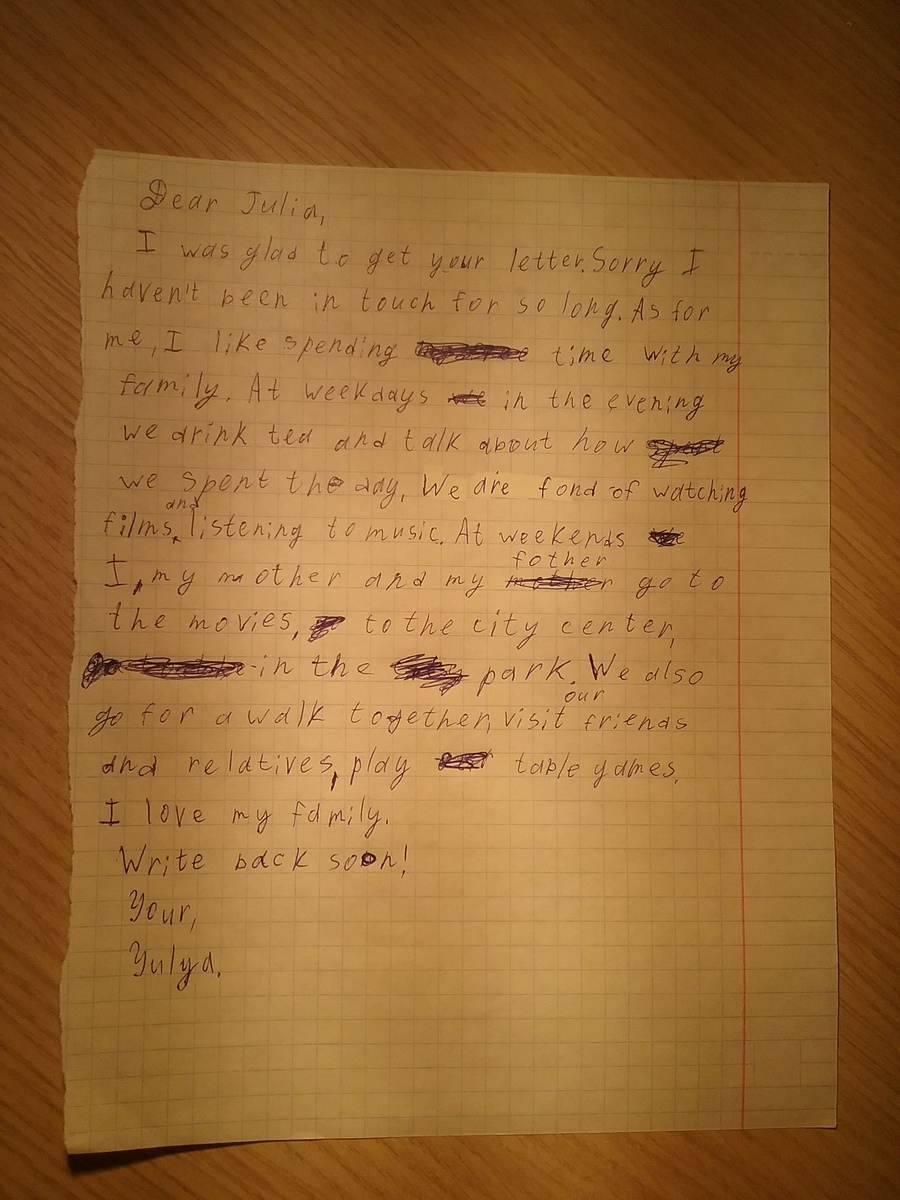 Dear Julia,
I was glad to get your letter. Sorry I
haven't been in touch for so long. As for
me, I like spending time with my
family. At weekdays in the evening
we drink tea and talk about how
we spent the day. We are fond of watching
films, and listening to music. At weekends
I, my mother and my father go to
the movies, to the city center,
in the park. We also
go for a walk together, visit our friends
and relatives, play table games.
I love my family.
Write back soon!
Your,
Yulya.